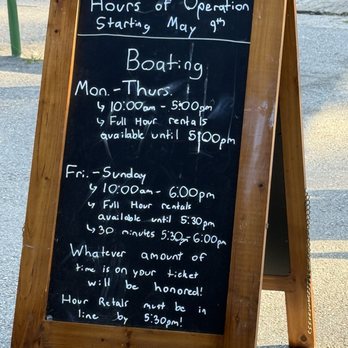 Hours of Operation
Starting May 9th
Boating
Mon.-Thurs.
↳ 10:00am - 5:00pm
↳ Full Hour rentals
available until 5:00pm
Fri.-Sunday
↳ 10:00am - 6:00pm
↳ Full Hour rentals
available until 5:30pm
↳ 30 minutes 5:30-6:00pm
Whatever amount of
time is on your ticket
will be honored!
Hour Retals must be in
line by 5:30pm!